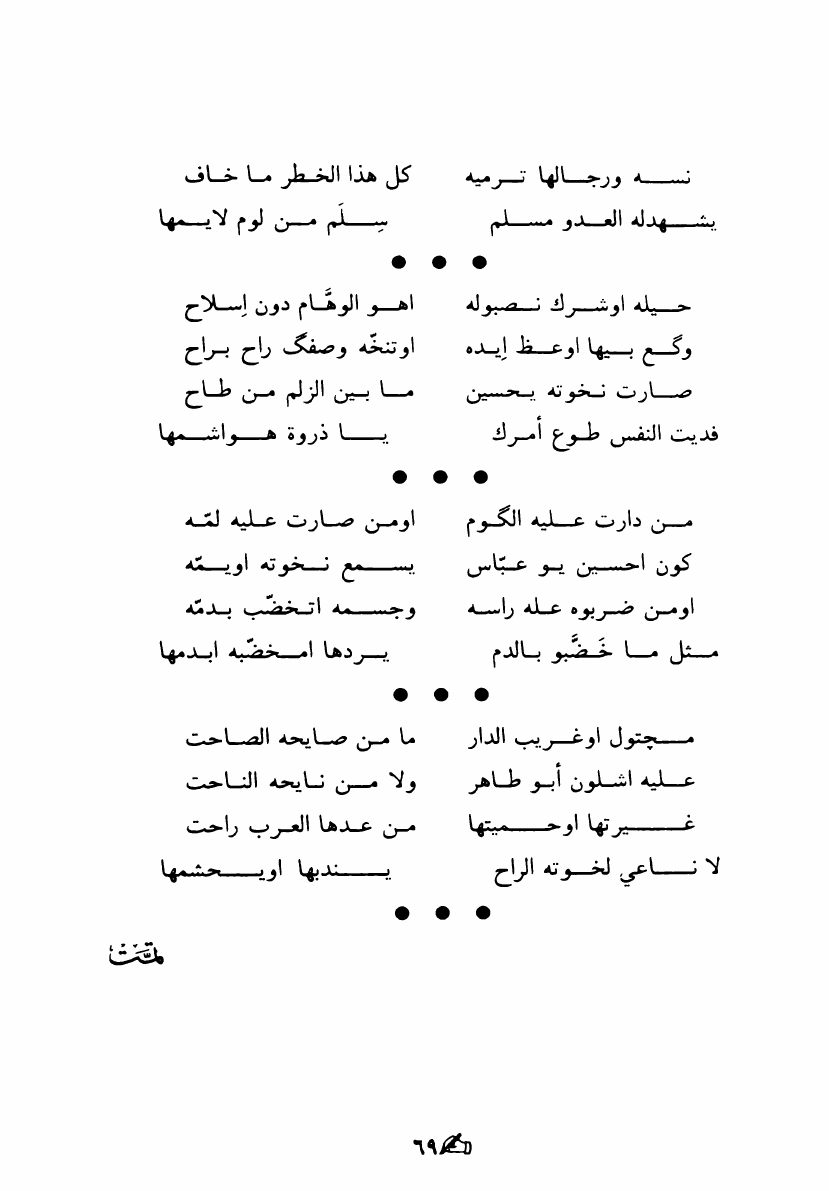 نسه ورجالها ترميه كل هذا الخطر ما خاف
يشهدله العدو مسلم سِلَم من لوم لايمها
● ● ●
حيله اوشرك نصبوله اهو الوهَّام دون إسلاح
وگع بيها اوعظ إيده اوتنخّه وصفگ راح براح
صارت نخوته يحسين ما بين الزلم من طاح
فديت النفس طوع أمرك يا ذروة هواشمها
● ● ●
من دارت عليه الگوم اومن صارت عليه لمّه
كون احسين يو عبّاس يسمع نخوته اويمّه
اومن ضربوه عله راسه وجسمه اتخضّب بدمّه
مثل ما خَضَّبو بالدم يردها امخضّبه ابدمها
● ● ●
مچتول اوغريب الدار ما من صايحه الصاحت
عليه اشلون أبو طاهر ولا من نايحه الناحت
غيرتها اوحميتها من عدها العرب راحت
لا ناعي لخوته الراح يندبها اويحشمها
● ● ●
تمت
٦٩